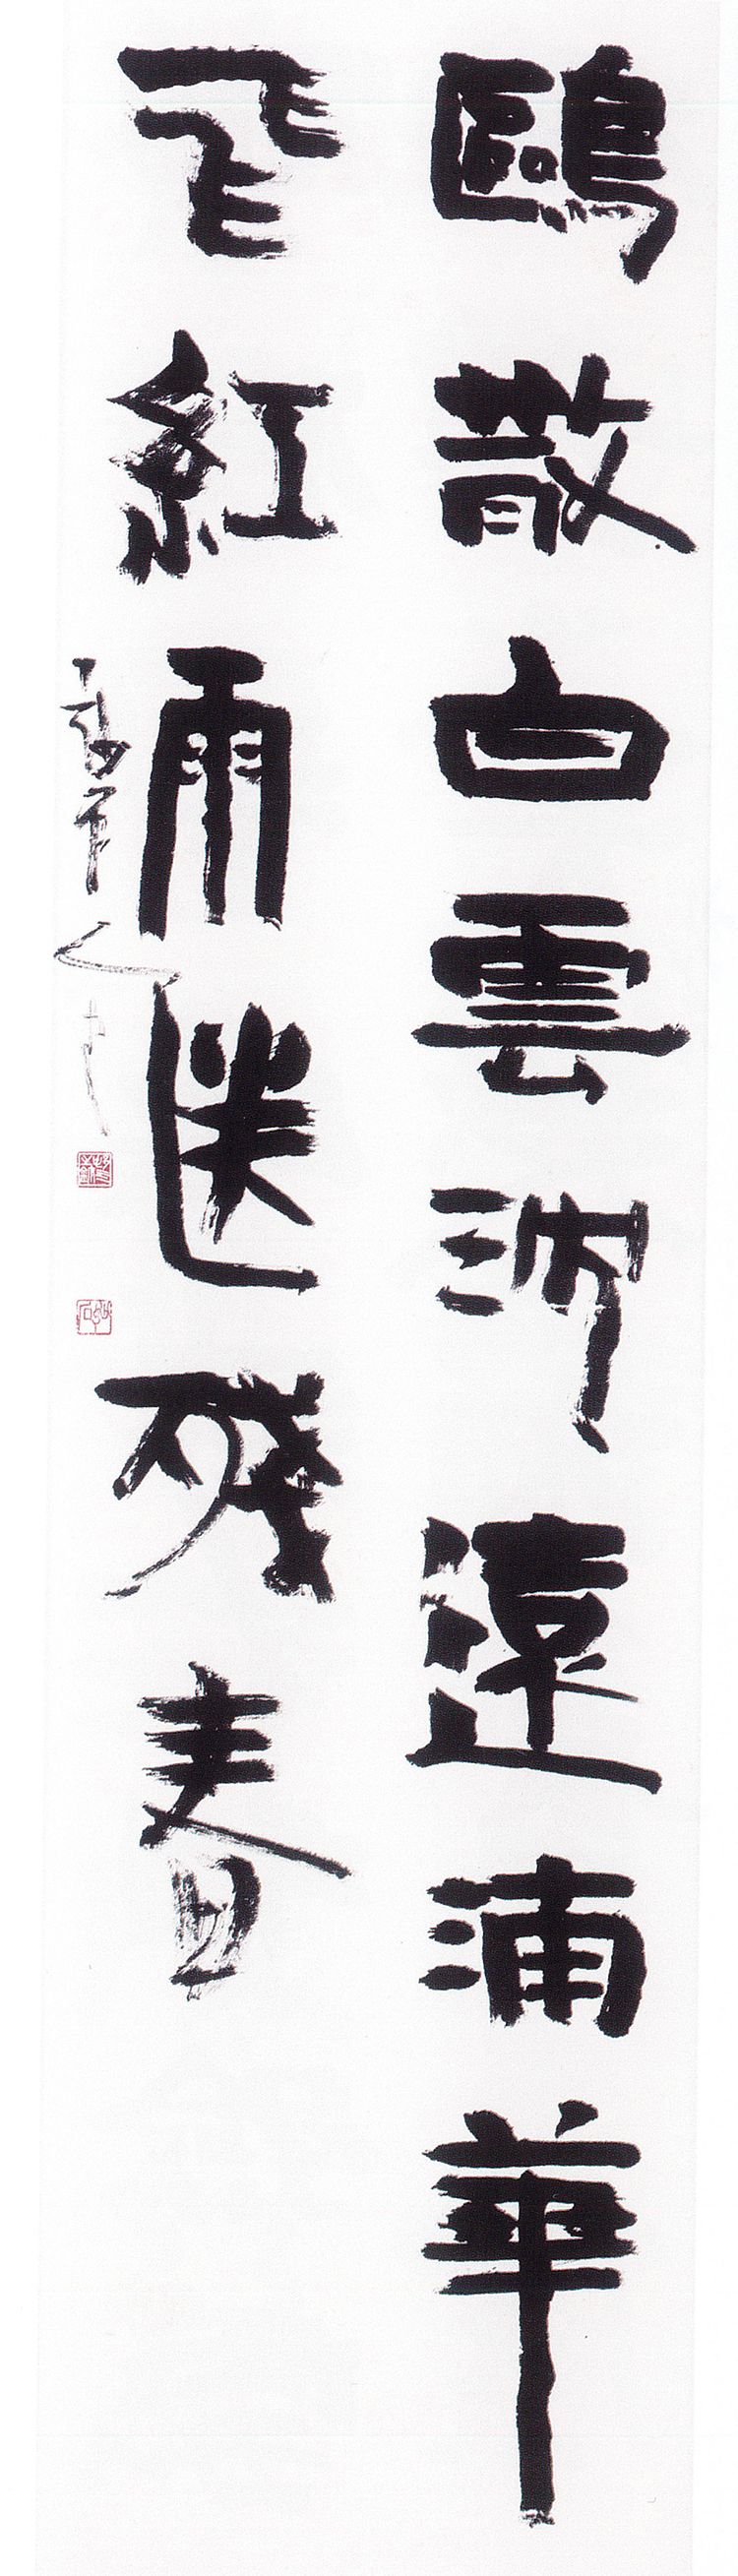 鷗散白雲沙遠浦華
飛紅雨送殘春